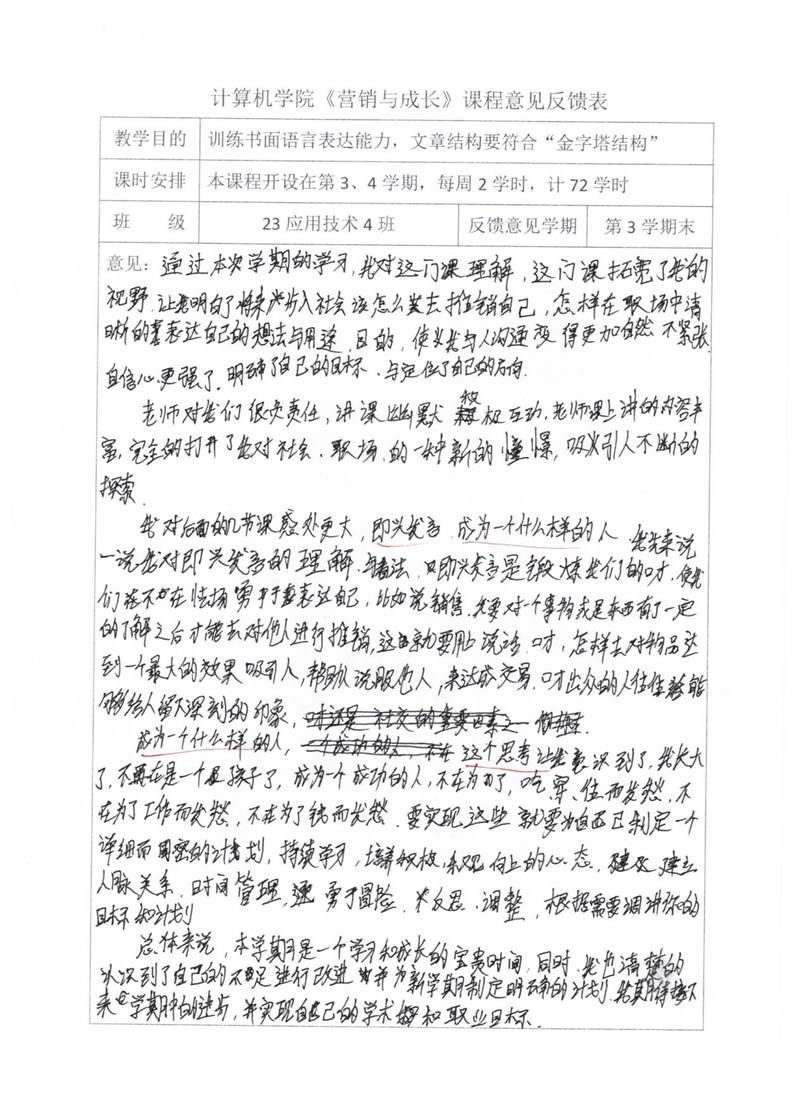 计算机学院《营销与成长》课程意见反馈表
教学目的 训练书面语言表达能力，文章结构要符合“金字塔结构”
课时安排 本课程开设在第 3、4 学期，每周 2 学时，计 72 学时
班 级 23 应用技术 4 班 反馈意见学期 第 3 学期末
意见：通过本次学期的学习，我对这门课理解，这门课拓宽了我的
视野，让我明白了将来步入社会该怎么去推销自己，怎样在职场中清
晰的表达自己的想法与用途、目的，使我与人沟通变得更加自然不紧张，
自信心更强了，明确了自己的目标，与定位了自己的方向。
老师对我们很负责任，讲课幽默积极互动，老师课上讲的内容丰
富，完全的打开了我对社会、职场的一种新的憧憬，吸引人不断的
探索。
我对后面的几节课感处更大，即兴发言、成为一个什么样的人，我先来说
一说我对即兴发言的理解与看法，即兴发言是锻炼我们的口才，使我
们在不在怯场勇于表达自己，比如说销售，先要对一个事物或是东西有了一定
的了解之后才能去对他人进行推销，这就要用上说话口才，怎样去对物品达
到一个最大的效果吸引人，帮助你说服他人，来达成交易，口才出众的人往往能
够给人留下深刻的印象，
成为一个什么样的人，这个思考让我意识到了，我长大
了，不再在是一个孩子了，成为一个成功的人，不在为了，吃、穿、住而发愁，不
在为了工作而发愁，不在为了钱而发愁，要实现这些就要为自己制定一个
详细而周密的计划，持续学习，培养积极、乐观向上的心态，建立
人脉关系，时间管理，勇于冒险，反思、调整，根据需要调讲你的
目标和计划
总体来说，本学期是一个学习和成长的宝贵时间，同时，我也清楚的
认识到了自己的不足进行改进，并为新学期制定明确的计划，我期待接下
来学期中的进步，并实现自己的学术和职业目标。